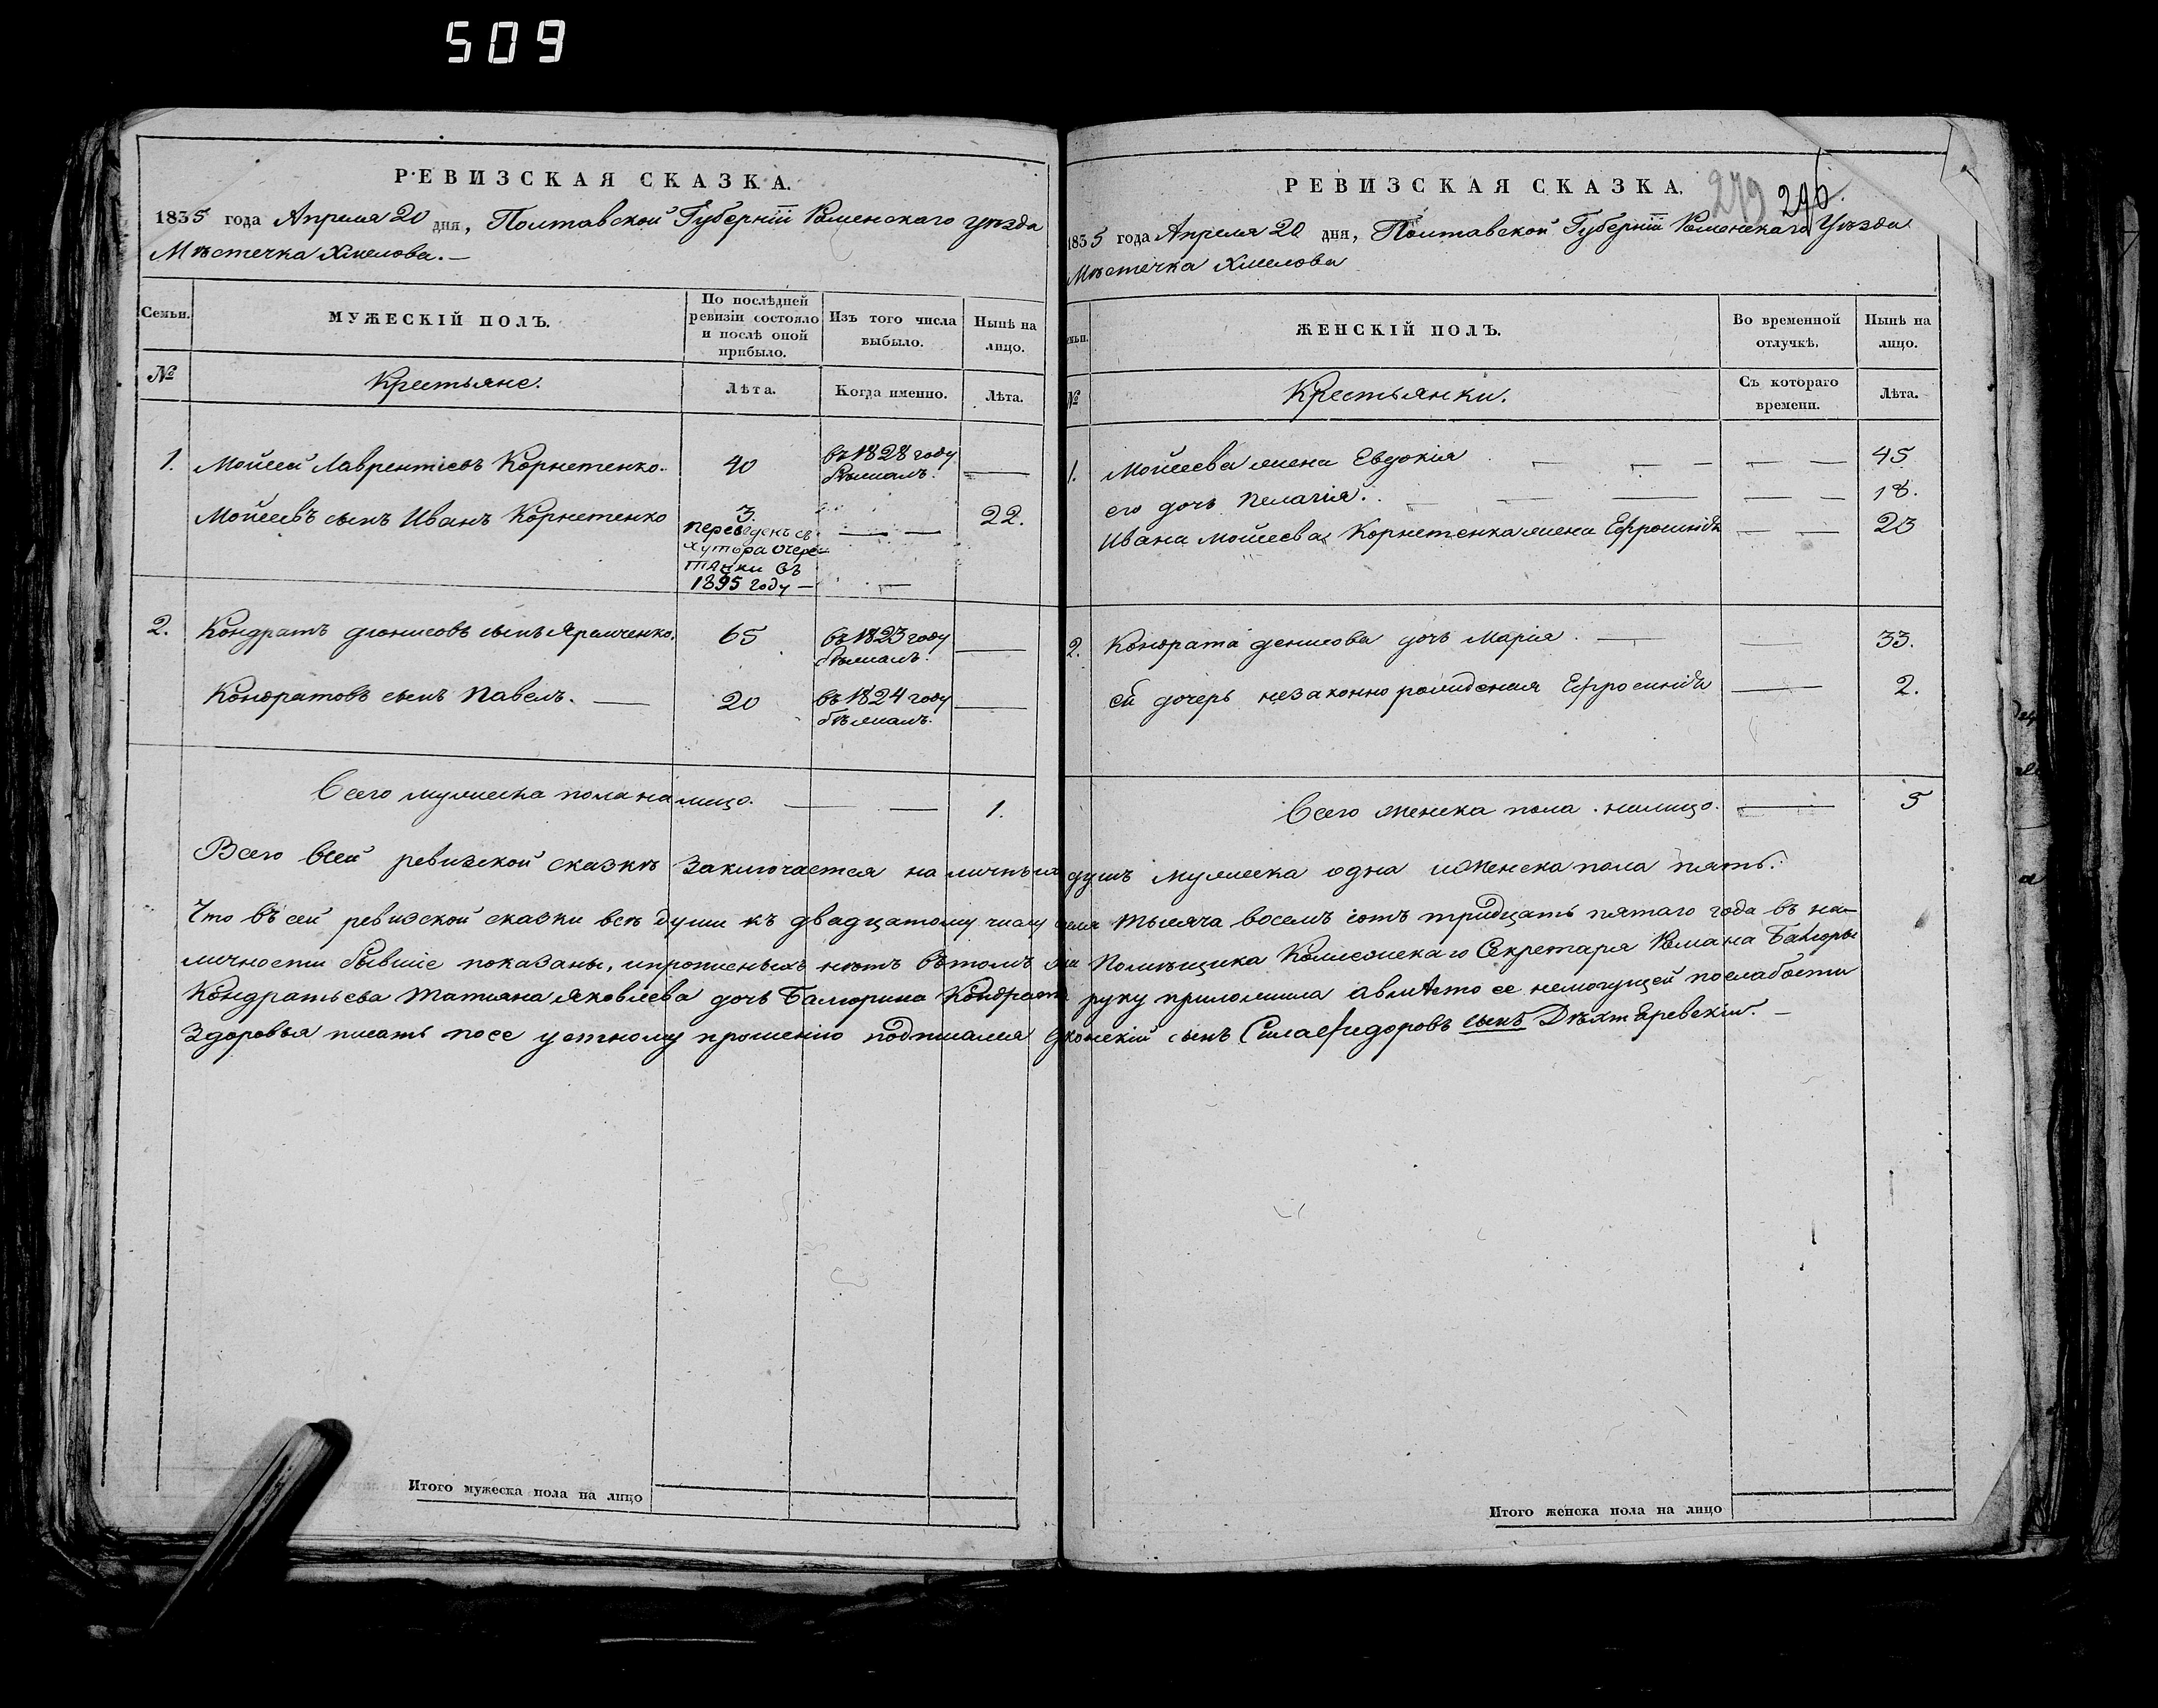 509
РЕВИЗСКАЯ СКАЗКА.
1835 года Апреля 20 дня, Полтавской Губернїи Роменскаго уѣзда
Мѣстечка Хмелова. —
Семьи. МУЖЕСКІЙ ПОЛЪ. По послѣдней ревизіи состояло и послѣ оной прибыло. Изъ того числа выбыло. Нынѣ на лицо.
№ Крестьяне. Лѣта. Когда именно. Лѣта.
1. Мойсей Лаврентіевъ Корнетенко. 40 въ 1828 году бѣжалъ. —
Мойсеевъ сынъ Иванъ Корнетенко 3. — — 22.
переведенъ съ
хутора Очере-
тянки въ
1835 году —
2. Кондратъ Дионисовъ сынъ Яремченко. 65 въ 1823 году бѣжалъ. —
Кондратовъ сынъ Павелъ. — 20 въ 1824 году бѣжалъ. —
Всего мужеска пола налицо. — — 1.
РЕВИЗСКАЯ СКАЗКА.
279 296.
1835 года Апреля 20 дня, Полтавской Губернїи Роменскаго Уѣзда
Мѣстечка Хмелова
ЖЕНСКІЙ ПОЛЪ. Во временной отлучкѣ. Нынѣ на лицо.
№ Крестьянки. Съ котораго времени. Лѣта.
1. Мойсеева жена Евдокія — — — — — 45
его дочь Пелагія. — — — — — 18.
Ивана Мойсеева Корнетенка жена Ефросинія — — 23
2. Кондрата Денисова дочь Марія. — — 33.
ей дочерь незаконно рожденая Ефросинія — 2.
Всего женска пола налицо. — 5
Всего всей ревизской сказкѣ заключается на личныхъ душъ мужеска одна и женска пола пять.
Что въ сей ревизской сказки всѣ души къ двадцатому числу тысяча восемъ сотъ тридцать пятаго года въ на-
личности бывшіе показаны, и прописныхъ нѣтъ въ томъ Помѣщика Коллежскаго Секретаря Романа
Кондратьева Татияна Яковлева дочь руку приложила а вмѣсто ее немогущей по слабости
здоровья писать по ее устному прошенію подписался сынъ Сила Федоровъ сынъ Дѣхтяревскій. —
Итого мужеска пола на лицо
Итого женска пола на лицо